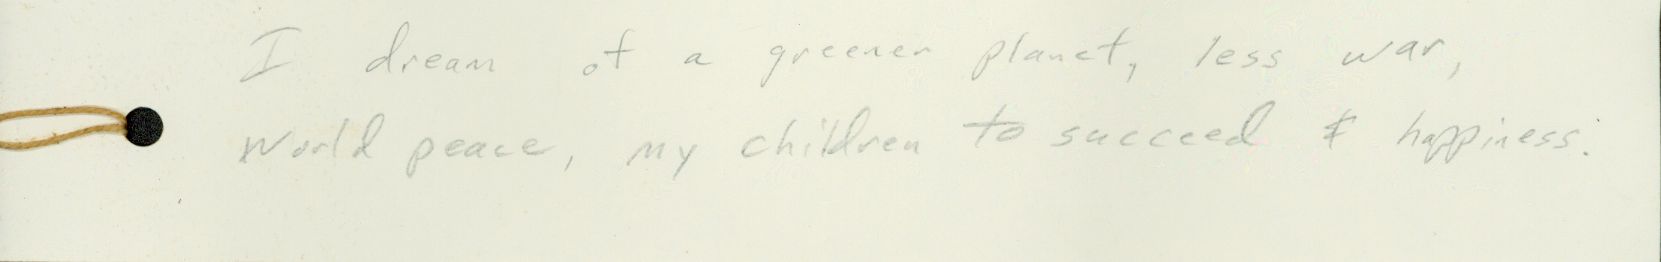 I dream of a greener planet, less war,
World peace, my children to succeed & happiness.